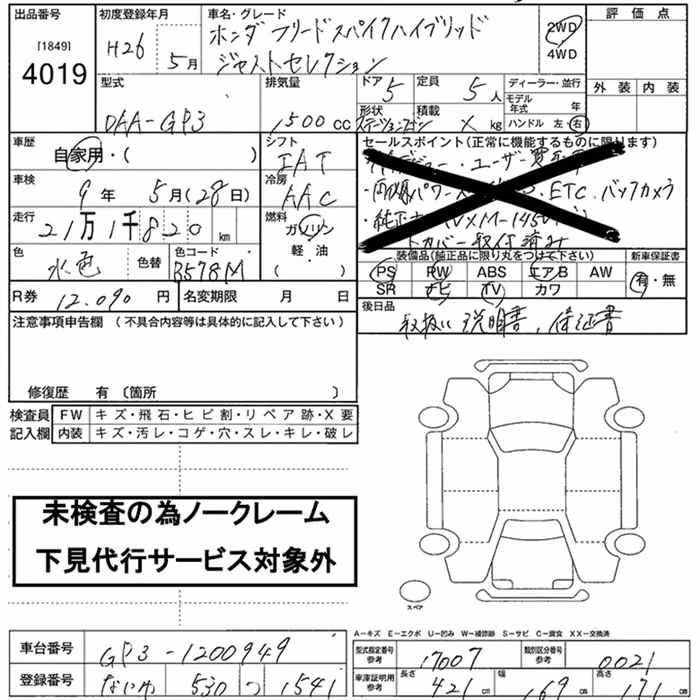 出品番号
[1849]
4019
初度登録年月
H26 5月
車名・グレード
ホンダ フリードスパイクハイブリッド
ジャストセレクション
2WD
4WD
評価点
外装 内装
型式
DAA-GP3
排気量
1500cc
ドア 5
定員 5人
形状 ステーションワゴン
積載 × kg
ディーラー・並行
モデル年式 年
ハンドル 左・右
車歴
自家用・( )
シフト
IAT
車検
9年 5月(28日)
冷房
AAC
走行
21万1千820km
燃料
ガソリン
軽・油
( )
色
水色
色替
色コード
B578M
R券 12,090円
名変期限 月 日
セールスポイント(正常に機能するものに限ります)
・ETC. バックカメラ
装備品(純正品に限り丸をつけて下さい)
PS RW ABS エアB AW
SR ナビ TV カワ
新車保証書
有・無
後日品
取扱い説明書、保証書
注意事項申告欄 (不具合内容等は具体的に記入して下さい)
修復歴 有 〔箇所 〕
検査員記入欄
FW キズ・飛石・ヒビ割・リペア跡・X要
内装 キズ・汚レ・コゲ・穴・スレ・キレ・破レ
未検査の為ノークレーム
下見代行サービス対象外
スペア
A-キズ E-エクボ U-凹み W-補修跡 S-サビ C-腐食 XX-交換済
車台番号 GP3-1200949
登録番号 なにわ 530 つ 1541
型式指定番号 参考 17007
類別区分番号 参考 0021
車庫証明用 参考
長さ 421cm
幅 169cm
高さ 171cm